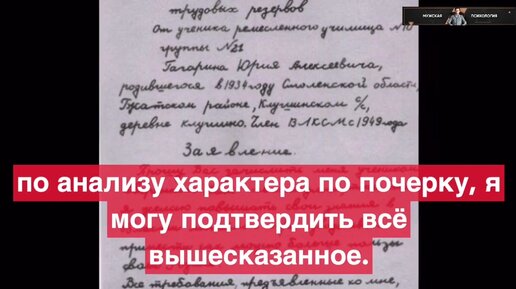 трудовых резервов
МУЖСКАЯ ПСИХОЛОГИЯ
От ученика ремесленного училища №10
группы №21
Гагарина Юрия Алексеевича,
родившегося в 1934 году Смоленской области,
Гжатском районе, Клушинском с/с,
деревне клушино. Член ВЛКСМ с 1949 года
Заявление.
Прошу Вас зачислить меня учеником
по анализу характера по почерку, я
могу подтвердить всё
вышесказанное.
я желаю повышать свои знания в
принести как можно больше пользы
Все требования, предъявленные ко мне,